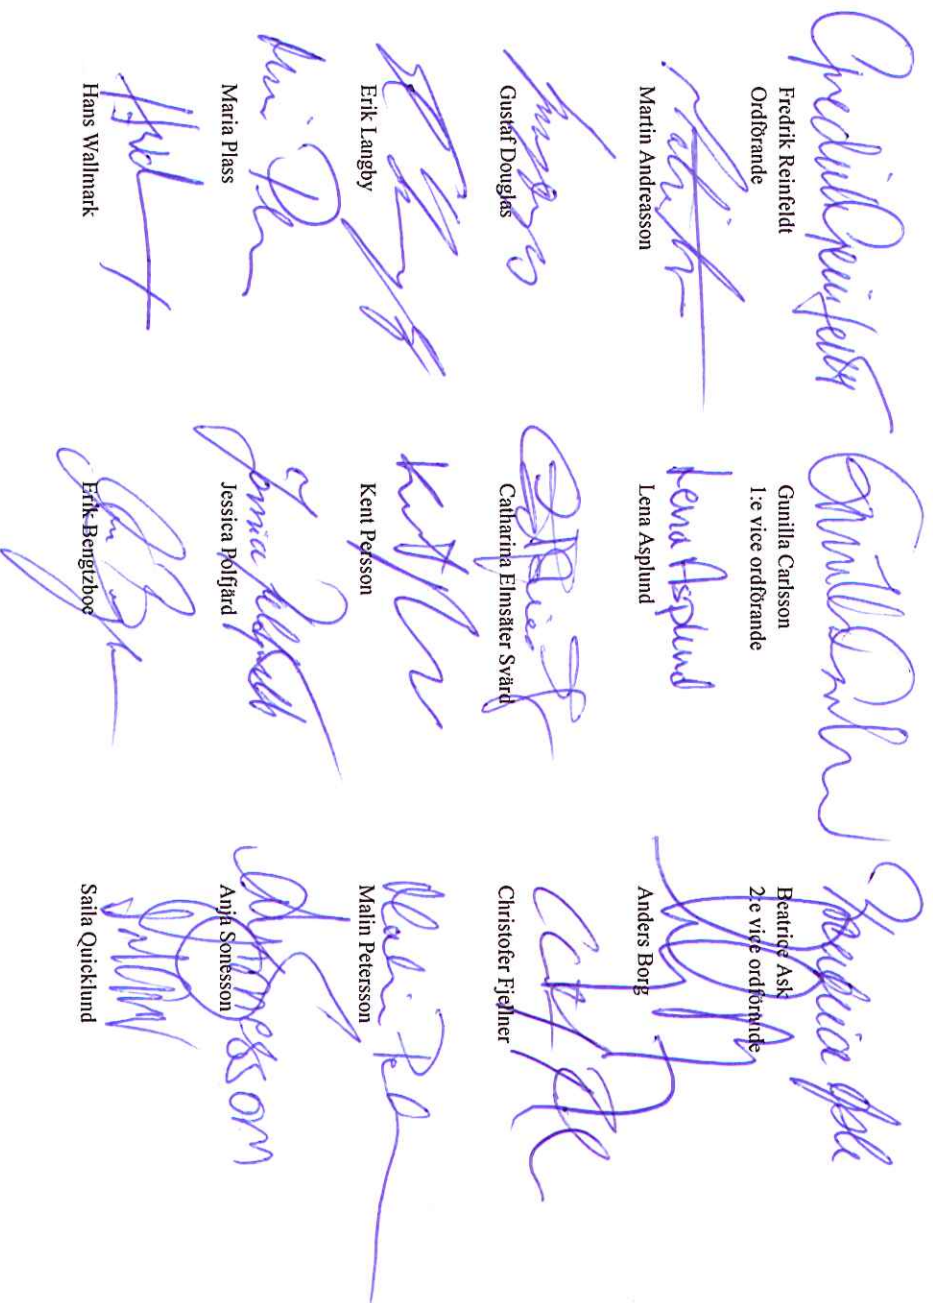 Fredrik Reinfeldt Beatrice Ask
Fredrik Reinfeldt Gunilla Carlsson Beatrice Ask
Ordförande 1:e vice ordförande 2:e vice ordförande
Lena Asplund
Martin Andreasson Lena Asplund Anders Borg
Gustaf Douglas Catharina Elmsäter Svärd Christofer Fjellner
Erik Langby Kent Persson Malin Petersson
Maria Plass Jessica Polfjärd Anja Sonesson
Hans Wallmark Erik Bengtzboe Saila Quicklund